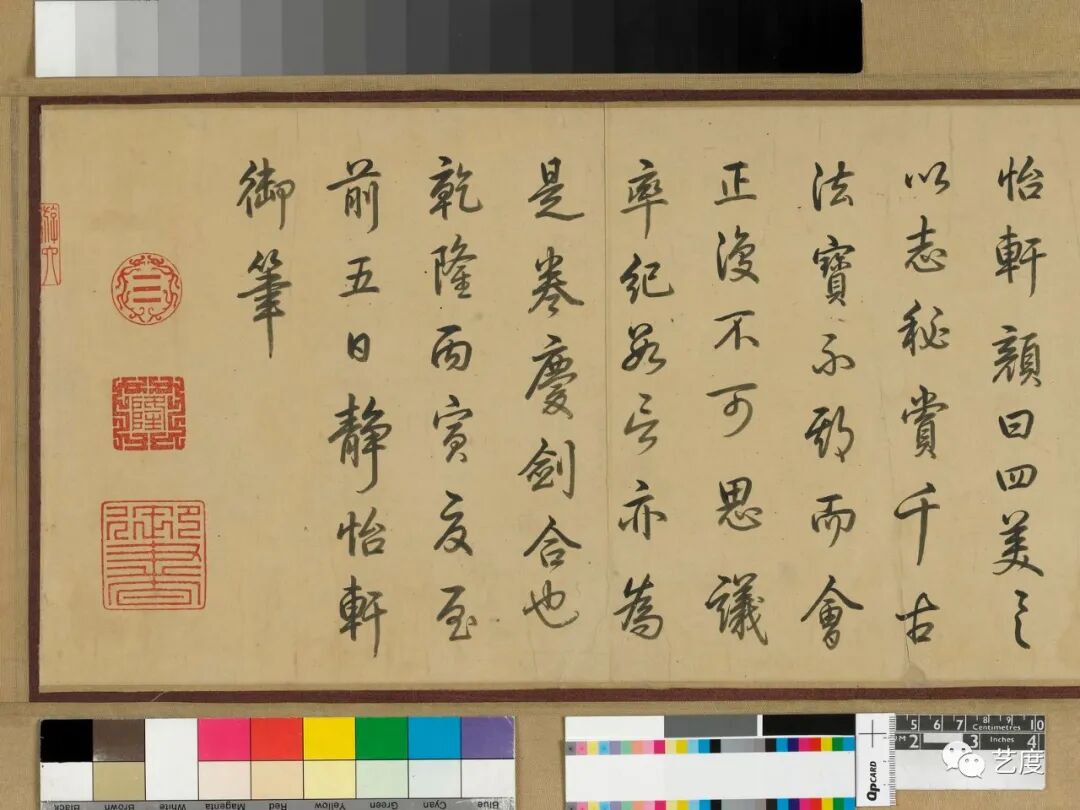 怡軒顏曰四美具
以志秘賞千古
法寶不期而會
正復不可思議
率紀數言亦為
是卷慶劍合也
乾隆丙寅夏至
前五日靜怡軒
御筆
隆
御書
Black
Brown
White
Magenta
Red
Yellow
Green
Cyan
Blue
QPCARD
5 6 7 8 9 10
Centimetres
2 3 4
Inches
艺度